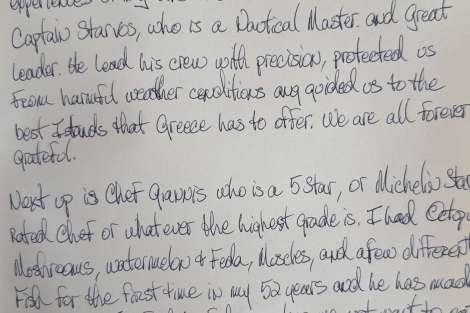 experiences
Captain Stavros, who is a Nautical Master. and Great
leader. He lead his crew with precision, protected us
From harmful weather conditions ang guided us to the
best Islands that Greece has to offer. We are all forever
grateful.
Next up is Chef Giannis who is a 5 Star, or Michelin Star
Rated Chef or whatever the highest grade is. I had Octopus
Moshrooms, watermelon & Feda, Muscles, and a few different
Fish for the first time in my 52 years and he has made